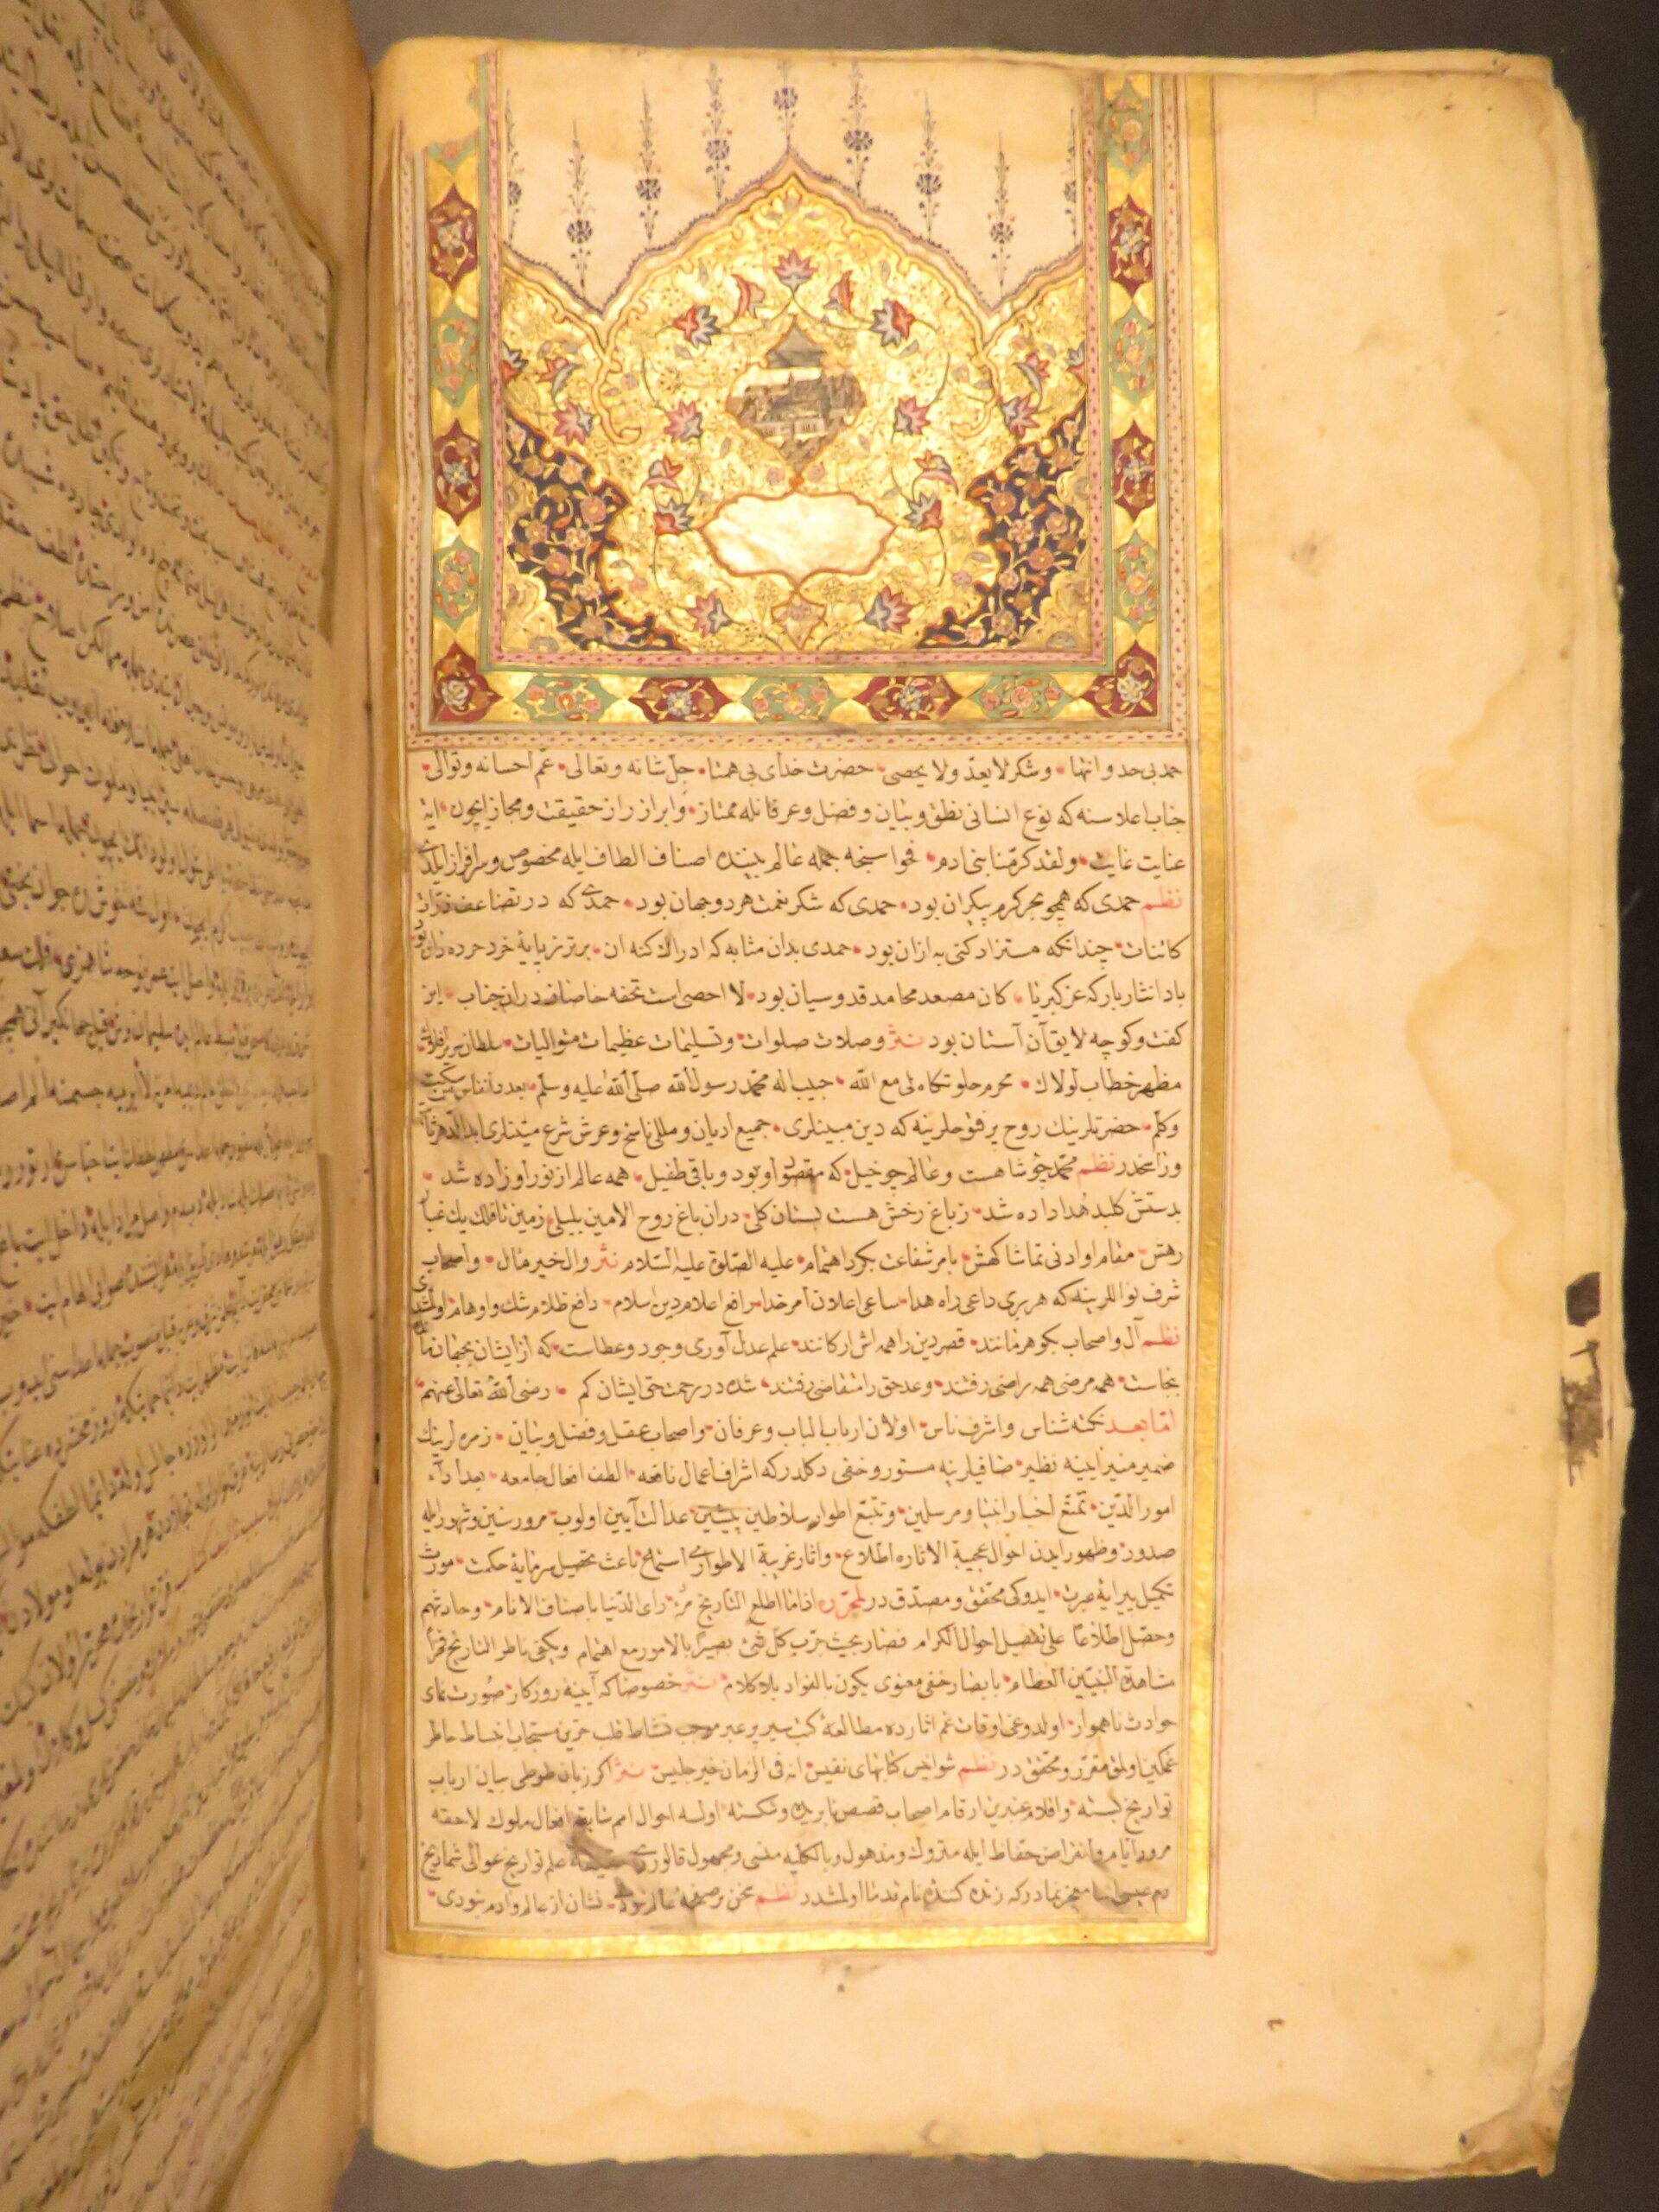 حمد بی حد و انتها وشکر لا یعد ولا یحصی حضرت خدای بی همتا جل شانه وتعالی عم احسانه وتوالی
جناب اعلاسنه که نوع انسانی نطق وبیان وفضل وعرفانله ممتاز وابراز راز حقیقت ومجاز ایچون ایة
عنایت غایت ولقد کرمنا بنی ادم فحواسنجه جمله عالم بیننده اصناف الطاف ایله مخصوص وسرافراز ایلدی
نظم حمدی که همچو بحر کرم بیکران بود حمدی که شکر نعمت هر دو جهان بود حمدی که در تضاعف ذرات
کائنات چندانکه مستزاد کنی به ازان بود حمدی بدان مثابه که ادراک کنه ان برتر ز پایهٔ خرد خرده دان بود
بادا نثار بارکه عز کبریا کان مصعد محامد قدوسیان بود لا احصی است تحفه خاصان دران جناب این
کفت وکو چه لایق آن آستان بود نثر وصلات صلوات وتسلیمات عظیمات متوالیات سلطان سریر
مظهر خطاب لولاک محرم خلوتکاه لی مع الله حبیب اله محمد رسول الله صلی الله علیه وسلم بعدد انفاس
وکلم حضرتلرینک روح پر فتوحلرینه که دین مبینلری جمیع ادیان ومللی ناسخ وعرش شرع متینلری ابد الدهر ثابت
وراسخدر نظم محمد چو شاهست وعالم چو خیل که مقصود او بود وباقی طفیل همه عالم از نور او زاده شد
بدستش کلید هدا داده شد ز باغ رخش هست بستان کلی دران باغ روح الامین بلبلی زمین تا فلک یک غبار
رهش مقام او ادنی تماشا کهش بامر شفاعت بکرد اهتمام علیه الصلوة علیه السلام نثر وال خیر مآل واصحاب
شرف نواللرینه که هر بری داعی راه هدا ساعی اعلان امر خدا رافع اعلام دین اسلام دافع ظلام شک واوهام اولمشدر
نظم آل واصحاب بکوهر مانند قصر دین را همه اش ارکانند علم عدل آوری وجود وعطاست که از ایشان بجهان
بجاست همه مرضی همه راضی رفتند وعد حق را متقاضی رفتند شده در رحمت حق ایشان کم رضی الله تعالی عنهم
اما بعد نکته شناس واشرف ناس اولان ارباب الباب وعرفان واصحاب عقل وفضل وبیان زمره لرینک
ضمیر منیر ایینه نظیر صافیلرینه مستور وخفی دکلدر که اشرف اعمال نافعه الطف افعال جامعه بعد اداء
امور الدین تمتع اخبار انبیا ومرسلین وتتبع اطوار سلاطین پیشین عدالت آیین اولوب مرور سنین وشهور ایله
صدور وظهور ایدن احوال عجیبة الاثاره اطلاع واثار غریبة الاطواری استماع باعث تحصیل سرمایهٔ حکمت مورث
تکمیل پیرایهٔ عبرت ایدوکی محقق ومصدق در لمحرره اذا ما اطلع التاریخ مرء رای الدنیا باصناف الانام وحادثهم
وحصل اطلاعا علی تفصیل احوال الکرام فصار بحیث جرب کل شیء بصیرا بالامور مع اهتمام ویکفی ناظر التاریخ فخرا
مشاهدة النبیین العظام بابصار خفی معنوی یکون بالفواد بلا کلام نثر خصوصا که آیینه روزکار صورت نمای
حوادث ناهموار اولدوغی اوقات غم اثارده مطالعهٔ کتب سیر پر عبر موجب نشاط قلب حزین مستجلب انبساط خاطر
غمکین اولمق مقرر ومحقق در نظم شو انیس کتابهای نفیس انه فی الزمان خیر جلیس نثر اکر زبان طوطی بیان ارباب
تواریخ بسته واقلام عنبرین ارقام اصحاب قصص نابریده وشکسته اولسه احوال امم سابقه افعال ملوک لاحقه
مرور ایام وانقراض حفاظ ایله متروک ومذهول وبالکلیه منسی ومجهول قالوردی علم تواریخ عوالی شماریخ
دم عیسی اسا معجزنمادر که زنده کننده نام قدما اولمشدر نظم سخن بر صفحهٔ عالم نبودی نشان از عالم وادم نبودی